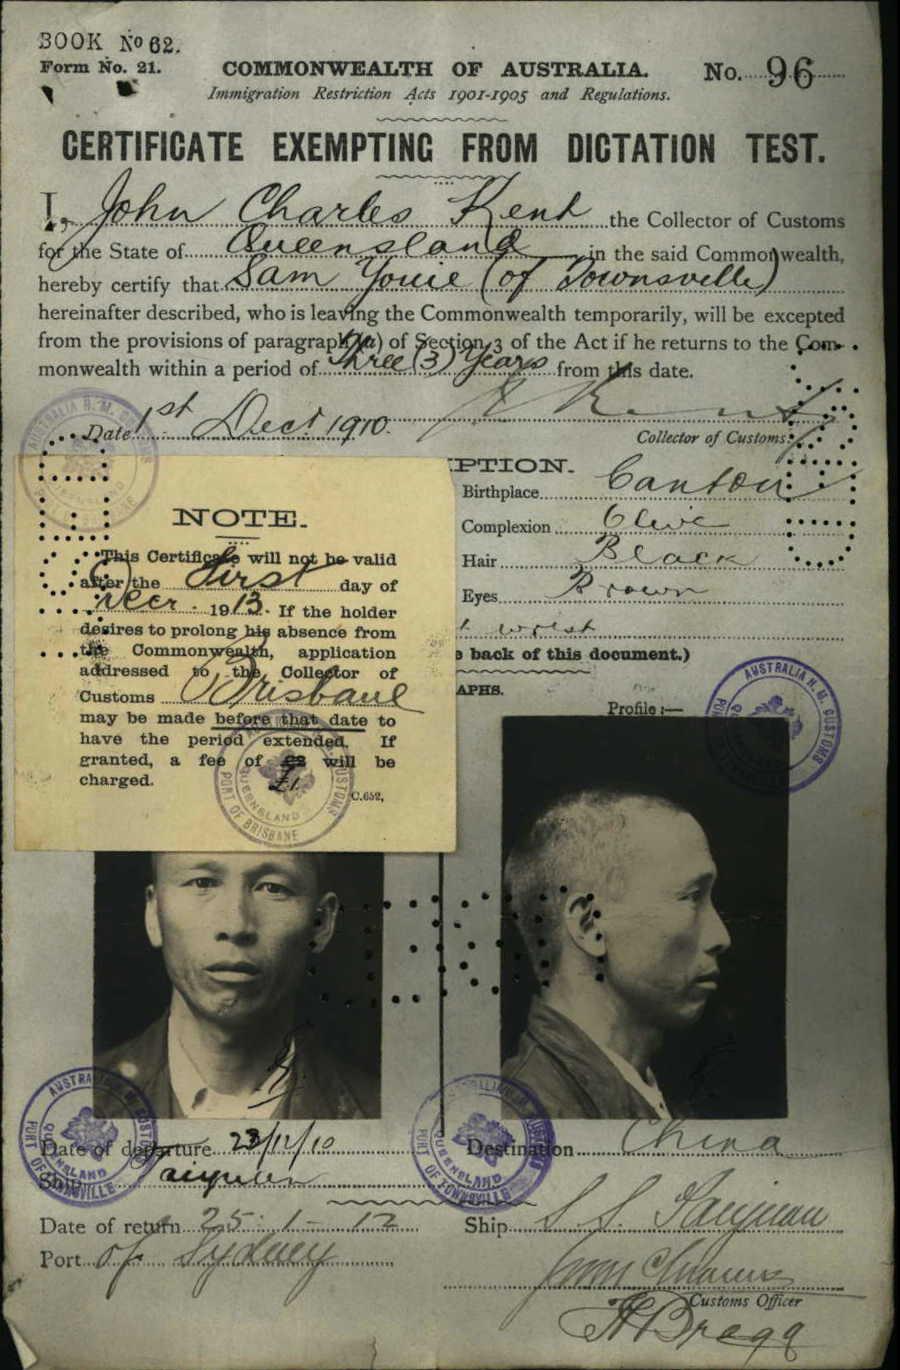 BOOK No 62.
Form No. 21.
COMMONWEALTH OF AUSTRALIA.
No. 96
Immigration Restriction Acts 1901-1905 and Regulations.
CERTIFICATE EXEMPTING FROM DICTATION TEST.
I, John Charles Kent the Collector of Customs
for the State of Queensland in the said Commonwealth,
hereby certify that Sam Youie (of Townsville)
hereinafter described, who is leaving the Commonwealth temporarily, will be excepted
from the provisions of paragraph (a) of Section 3 of the Act if he returns to the Com-
monwealth within a period of Three (3) Years from this date.
Date 1st Dect 1910.
Collector of Customs.
PTION.
Birthplace Canton
Complexion Olive
Hair Black
Eyes Brown
t wrist
e back of this document.)
APHS.
Profile:—
NOTE.
This Certificate will not be valid
after the First day of
Decr. 1913. If the holder
desires to prolong his absence from
the Commonwealth, application
addressed to the Collector of
Customs Brisbane
may be made before that date to
have the period extended. If
granted, a fee of £2 £1 will be
charged.
C.652,
AUSTRALIA H. M. CUSTOMS
QUEENSLAND
PORT OF BRISBANE
AUSTRALIA H. M. CUSTOMS
AUSTRALIA H. M. CUSTOMS
QUEENSLAND
PORT OF TOWNSVILLE
AUSTRALIA H. M. CUSTOMS
QUEENSLAND
PORT OF TOWNSVILLE
Date of departure 23/12/10
Destination China
Ship Taiyuan
Date of return 25-1-12
Ship S.S. Taiyuan
Port of Sydney
Customs Officer
H Bragg